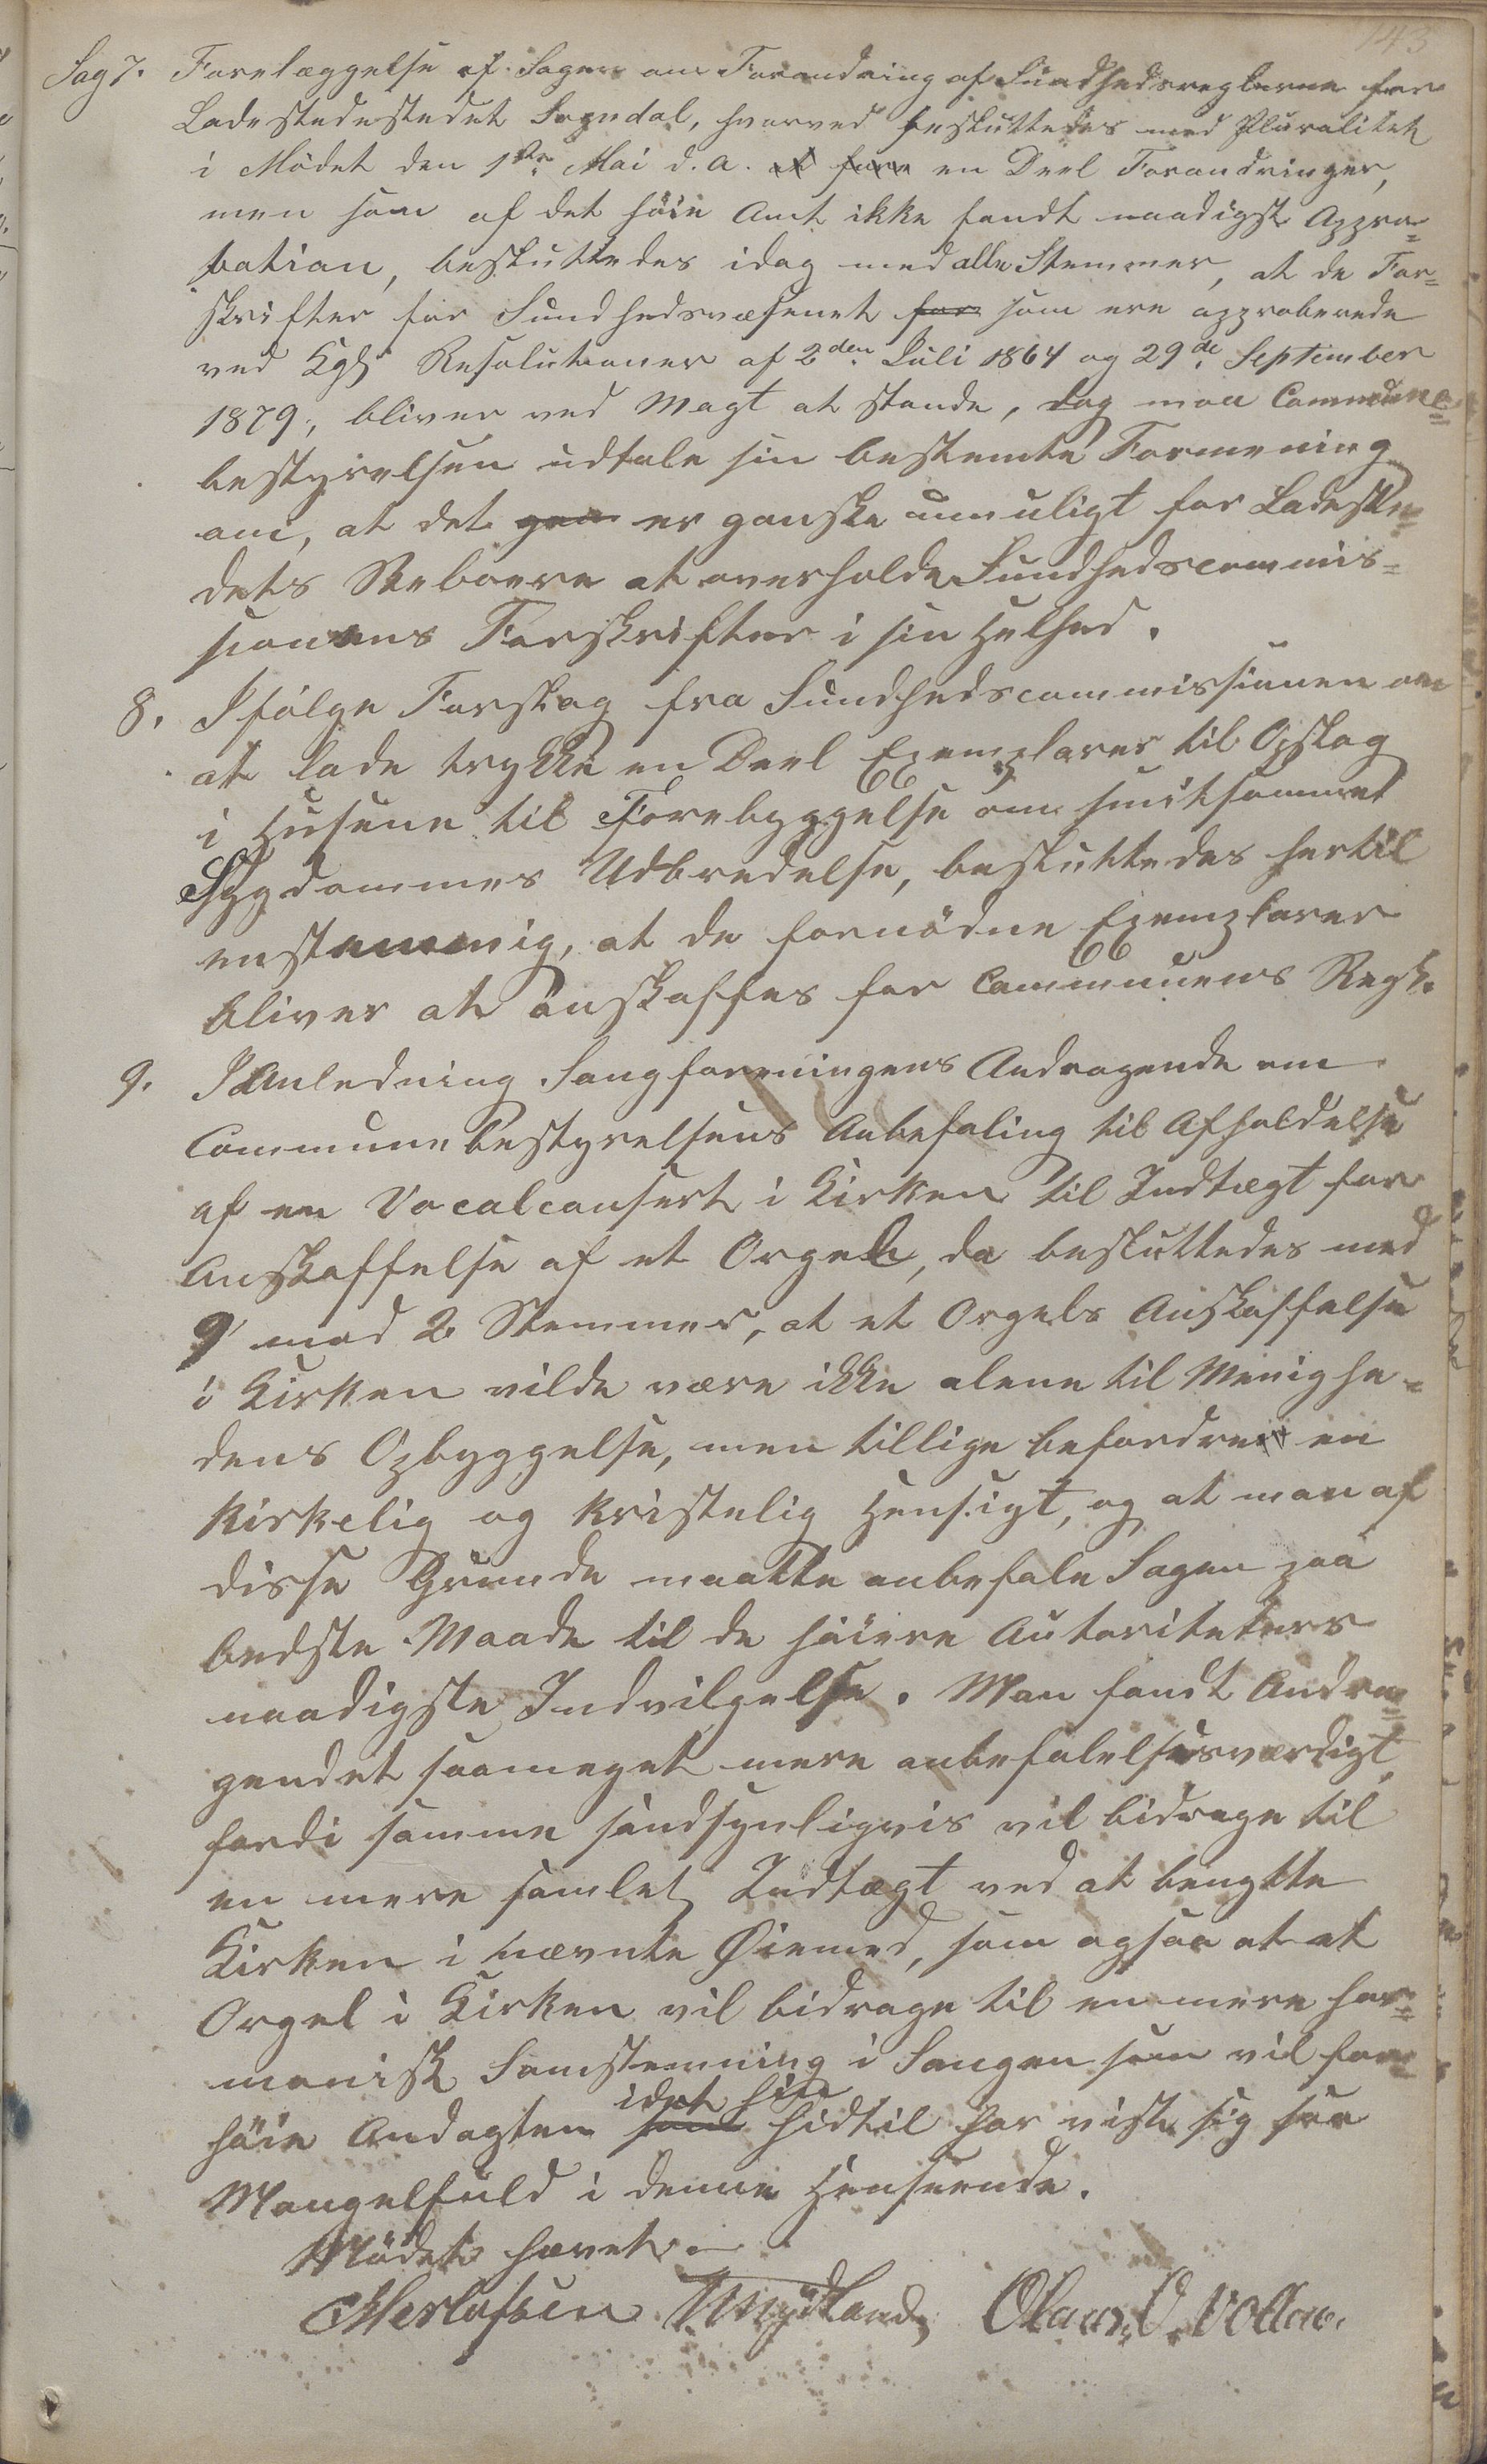 143
Sag 7. Forelæggelse af Sagen om Forandring af Sundhedsreglerne for
Ladestedestedet Sogndal, hvorved besluttedes med Pluralitet
i Mödet den 1ste Mai d. A. at fare en Deel Forandringer,
men som af det höie Amt ikke fandt naadigst Appro-
bation, besluttedes idag med alle Stemmer, at de For-
skrifter for Sundhedsvæsenet for som ere approberede
ved Kgl. Resolutioner af 2den Juli 1864 og 29de September
1879, bliver ved Magt at stande, dog maa Commune-
bestyrelsen udtale sin bestemte Formening
om, at det gan er ganske umuligt for Ladeste-
dets Beboere at overholde Sundhedscommis-
sionens Forskrifter i sin Helhed.
8. Ifölge Forslag fra Sundhedscommissionen om
at lade trykke en Deel Exemplarer til Opslag
i Husene til Forebyggelse om smitsommet
Sygdommes Udbredelse, besluttedes hertil
enstemmig, at de fornödne Exemplarer
bliver at anskaffes for Communens Regk.
9. I Anledning Sangforeningens Andragende om
Communebestyrelsens Anbefaling til Afholdelse
af en Vocalconsert i Kirken til Indtægt for
Anskaffelse af et Orgel, da besluttedes med
9 mod 2 Stemmer, at et Orgels Anskaffelse
i Kirken vilde være ikke alene til Menighe-
dens Opbyggelse, men tillige befordre en
kirkelig og kristelig Hensigt, og at man af
disse Grunde maatte anbefale Sagen paa
bedste Maade til de höiere Autoriteters
naadigste Indvilgelse. Man fandt Andra-
gendet saameget mere anbefalelsesværdigt,
fordi samme sandsynligvis vil bidrage til
en mere samlet Indtægt ved at benytte
Kirken i nævnte Øiemed, som ogsaa at et
Orgel i Kirken vil bidrage til en mere har-
monisk Samstemning i Sangen som vil for-
idet hin
höie Andagten som hidtil har vist sig saa
Mangelfuld i denne Henseende.
Mödet hævet.
Olaus O. Vollan.